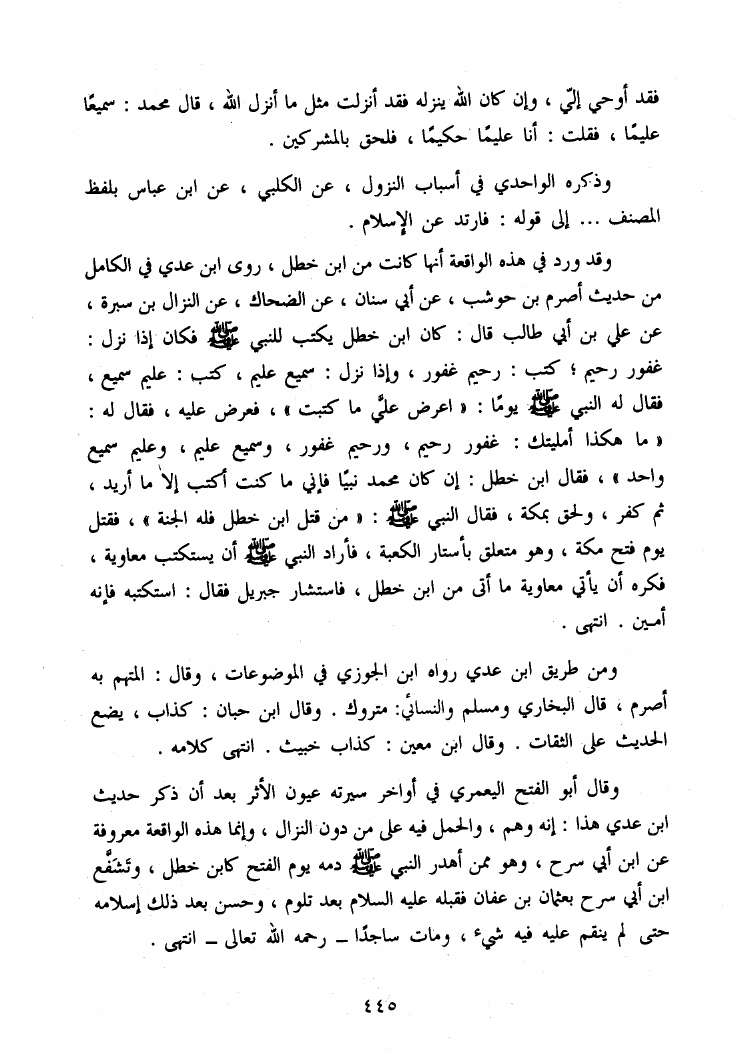 فقد أوحي إليّ ، وإن كان الله ينزله فقد أنزلت مثل ما أنزل الله ، قال محمد : سميعًا
عليمًا ، فقلت : أنا عليمًا حكيمًا ، فلحق بالمشركين .
وذكره الواحدي في أسباب النزول ، عن الكلبي ، عن ابن عباس بلفظ
المصنف ... إلى قوله : فارتد عن الإسلام .
وقد ورد في هذه الواقعة أنها كانت من ابن خطل ، روى ابن عدي في الكامل
من حديث أصرم بن حوشب ، عن أبي سنان ، عن الضحاك ، عن النزال بن سبرة ،
عن علي بن أبي طالب قال : كان ابن خطل يكتب للنبي ﷺ فكان إذا نزل :
غفور رحيم ؛ كتب : رحيم غفور ، وإذا نزل : سميع عليم ، كتب : عليم سميع ،
فقال له النبي ﷺ يومًا : « اعرض عليَّ ما كتبت » ، فعرض عليه ، فقال له :
« ما هكذا أمليتك : غفور رحيم ، ورحيم غفور ، وسميع عليم ، وعليم سميع
واحد » ، فقال ابن خطل : إن كان محمد نبيًا فإني ما كنت أكتب إلا ما أريد ،
ثم كفر ، ولحق بمكة ، فقال النبي ﷺ : « من قتل ابن خطل فله الجنة » ، فقتل
يوم فتح مكة ، وهو متعلق بأستار الكعبة ، فأراد النبي ﷺ أن يستكتب معاوية ،
فكره أن يأتي معاوية ما أتى من ابن خطل ، فاستشار جبريل فقال : استكتبه فإنه
أمين . انتهى .
ومن طريق ابن عدي رواه ابن الجوزي في الموضوعات ، وقال : المتهم به
أصرم ، قال البخاري ومسلم والنسائي: متروك . وقال ابن حبان : كذاب ، يضع
الحديث على الثقات . وقال ابن معين : كذاب خبيث . انتهى كلامه .
وقال أبو الفتح اليعمري في أواخر سيرته عيون الأثر بعد أن ذكر حديث
ابن عدي هذا : إنه وهم ، والحمل فيه على من دون النزال ، وإنما هذه الواقعة معروفة
عن ابن أبي سرح ، وهو ممن أهدر النبي ﷺ دمه يوم الفتح كابن خطل ، وتَشَفَّع
ابن أبي سرح بعثمان بن عفان فقبله عليه السلام بعد تلوم ، وحسن بعد ذلك إسلامه
حتى لم ينقم عليه فيه شيء ، ومات ساجدًا – رحمه الله تعالى – انتهى .
٤٤٥